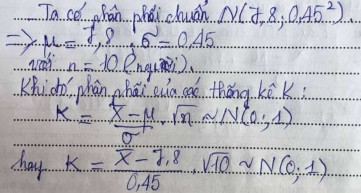 Ta có phân phối chuẩn N(7,8; 0,45²)
=> μ = 7,8, σ = 0,45
với n = 10 (người).
Khi đó phân phối của các thống kê K:
K = (X̄ - μ)/σ . √n ~ N(0; 1)
hay K = (X̄ - 7,8)/0,45 . √10 ~ N(0; 1)